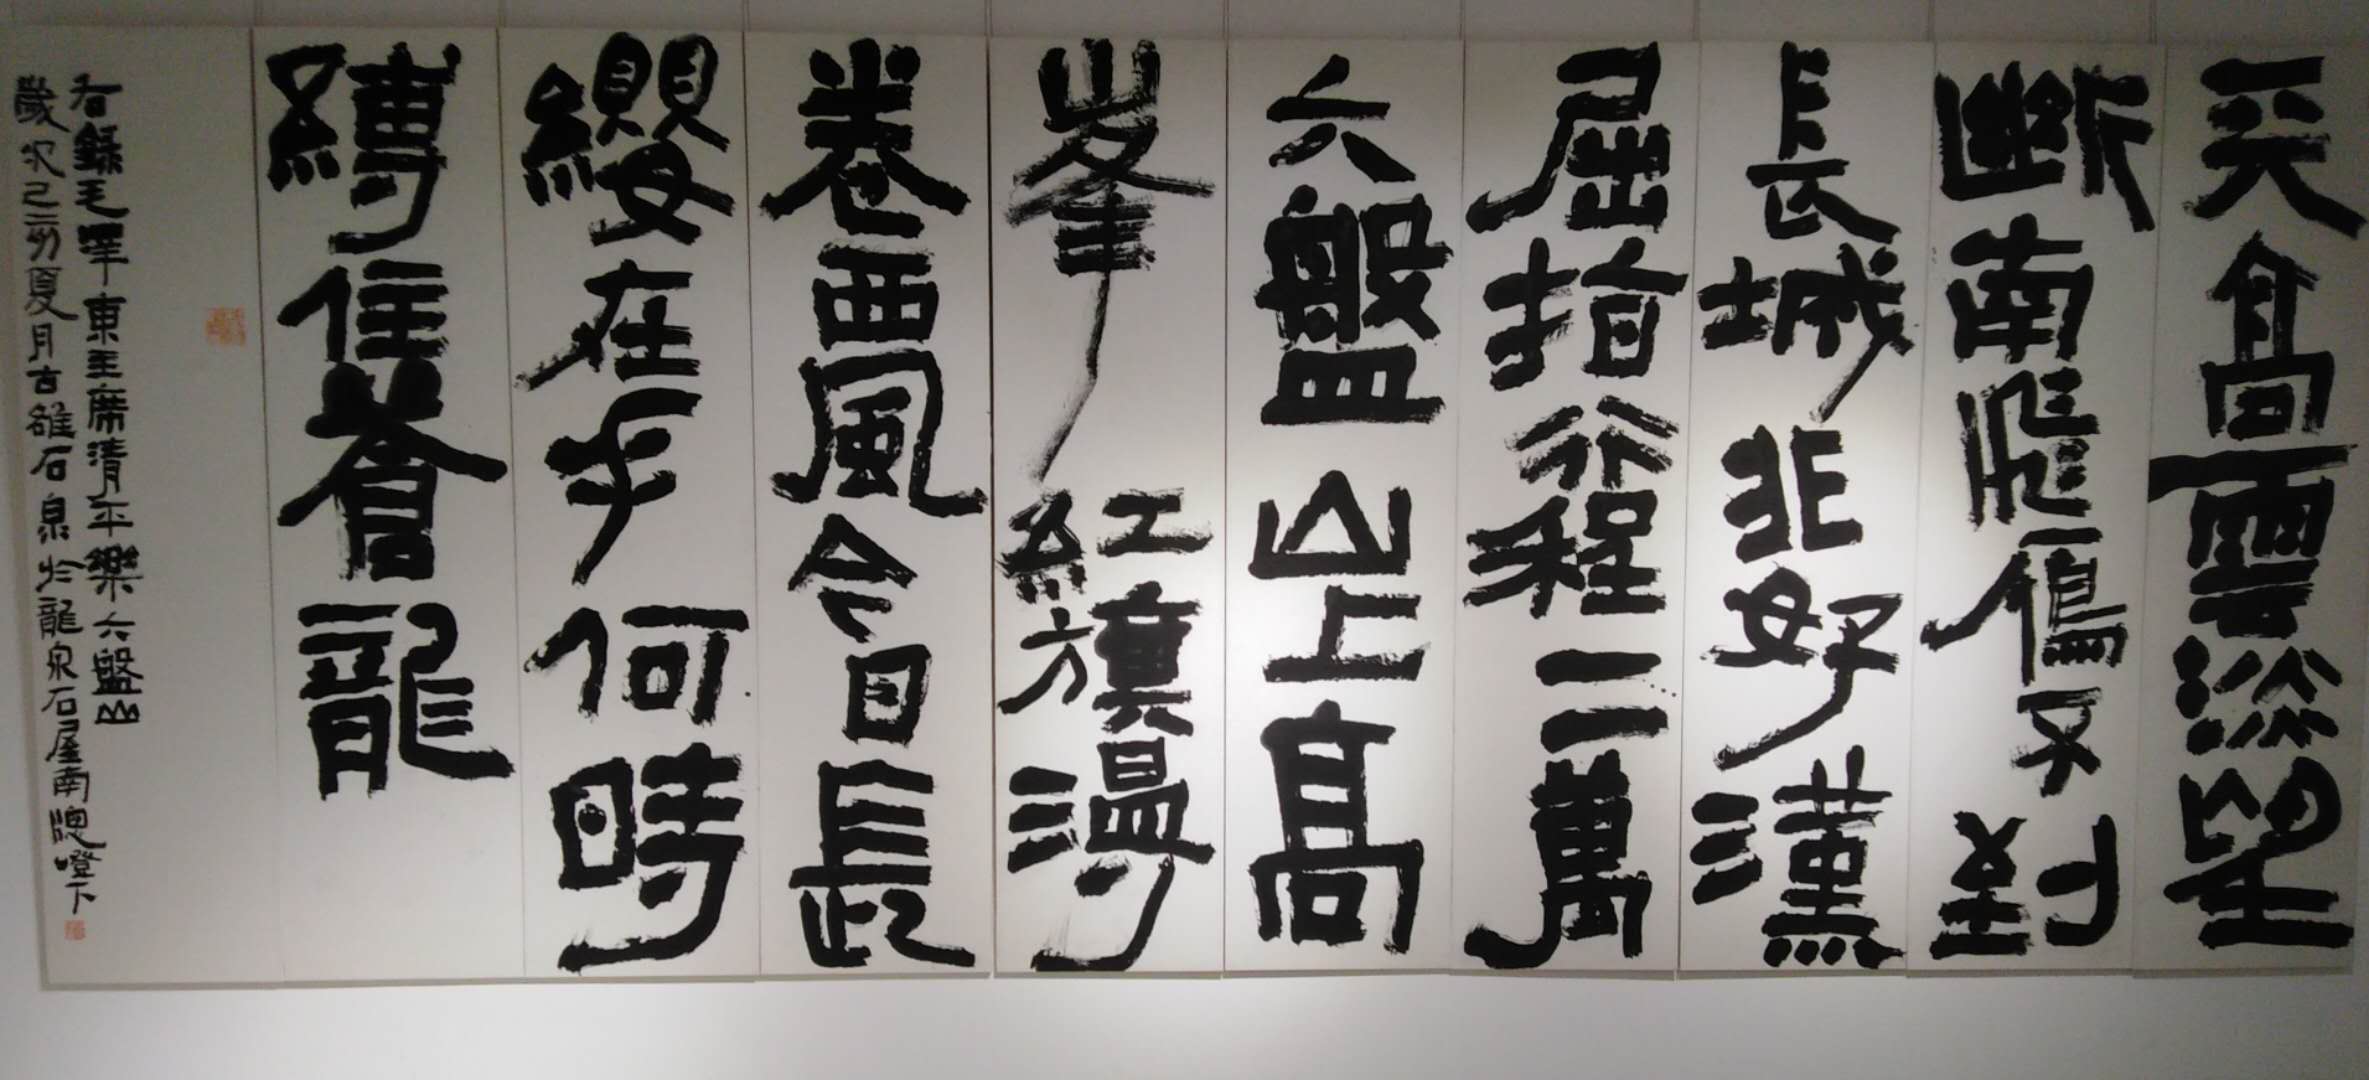 天高雲淡望
斷南飛雁不到
長城非好漢
屈指行程二萬
六盤山上高
峯紅旗漫
卷西風今日長
纓在手何時
縛住蒼龍
右錄毛澤東主席清平樂六盤山
歲次己亥夏月古雒石泉於龍泉石屋南牕燈下